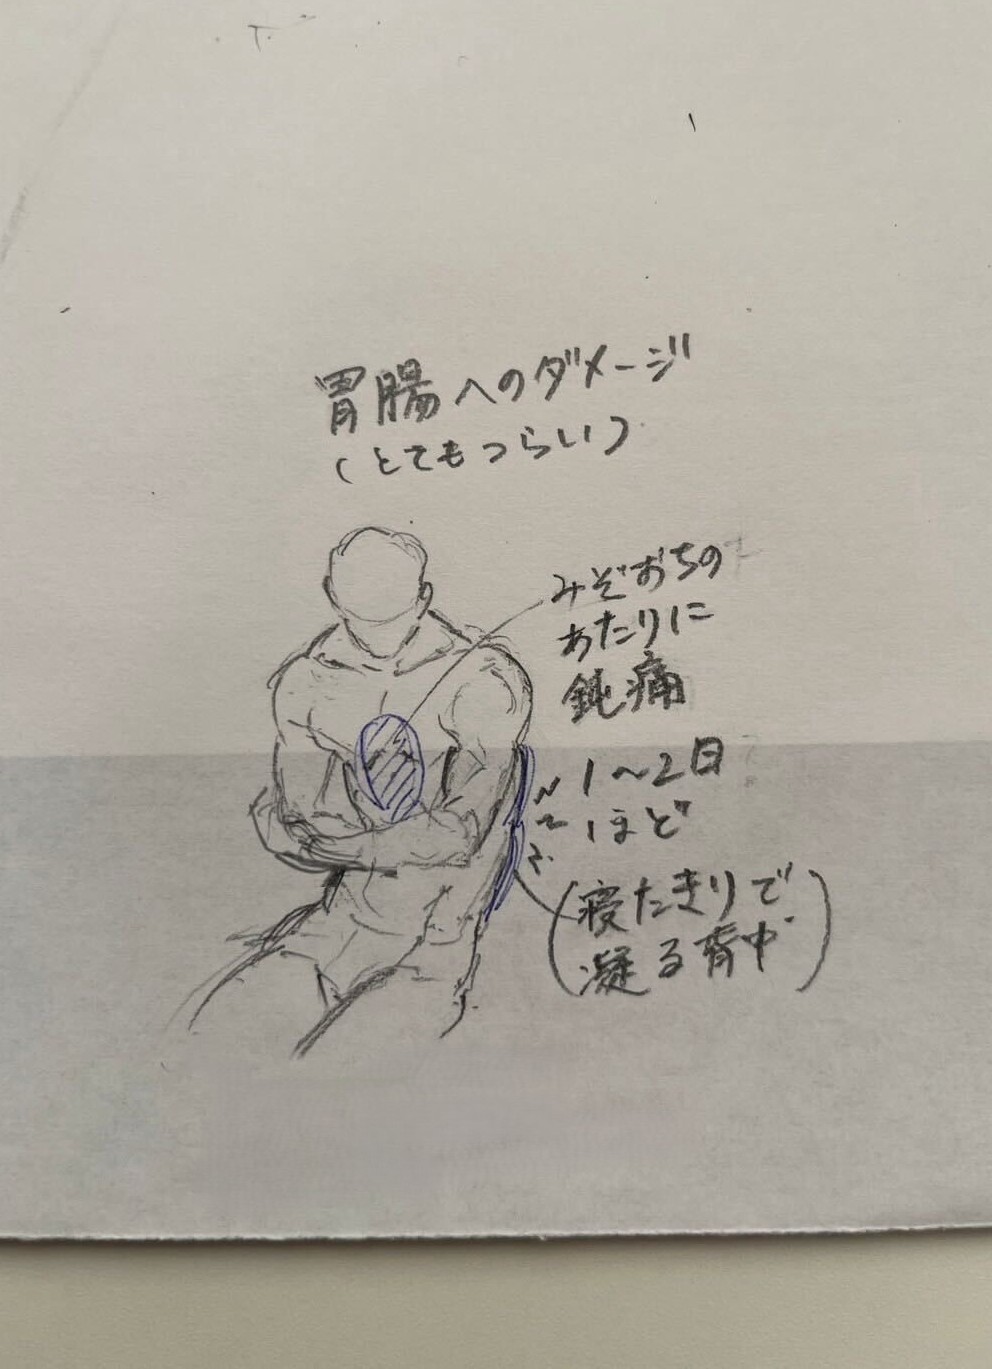 胃腸へのダメージ
(とてもつらい)
みぞおちの
あたりに
鈍痛
1〜2日
ほど
(寝たきりで
凝る背中)